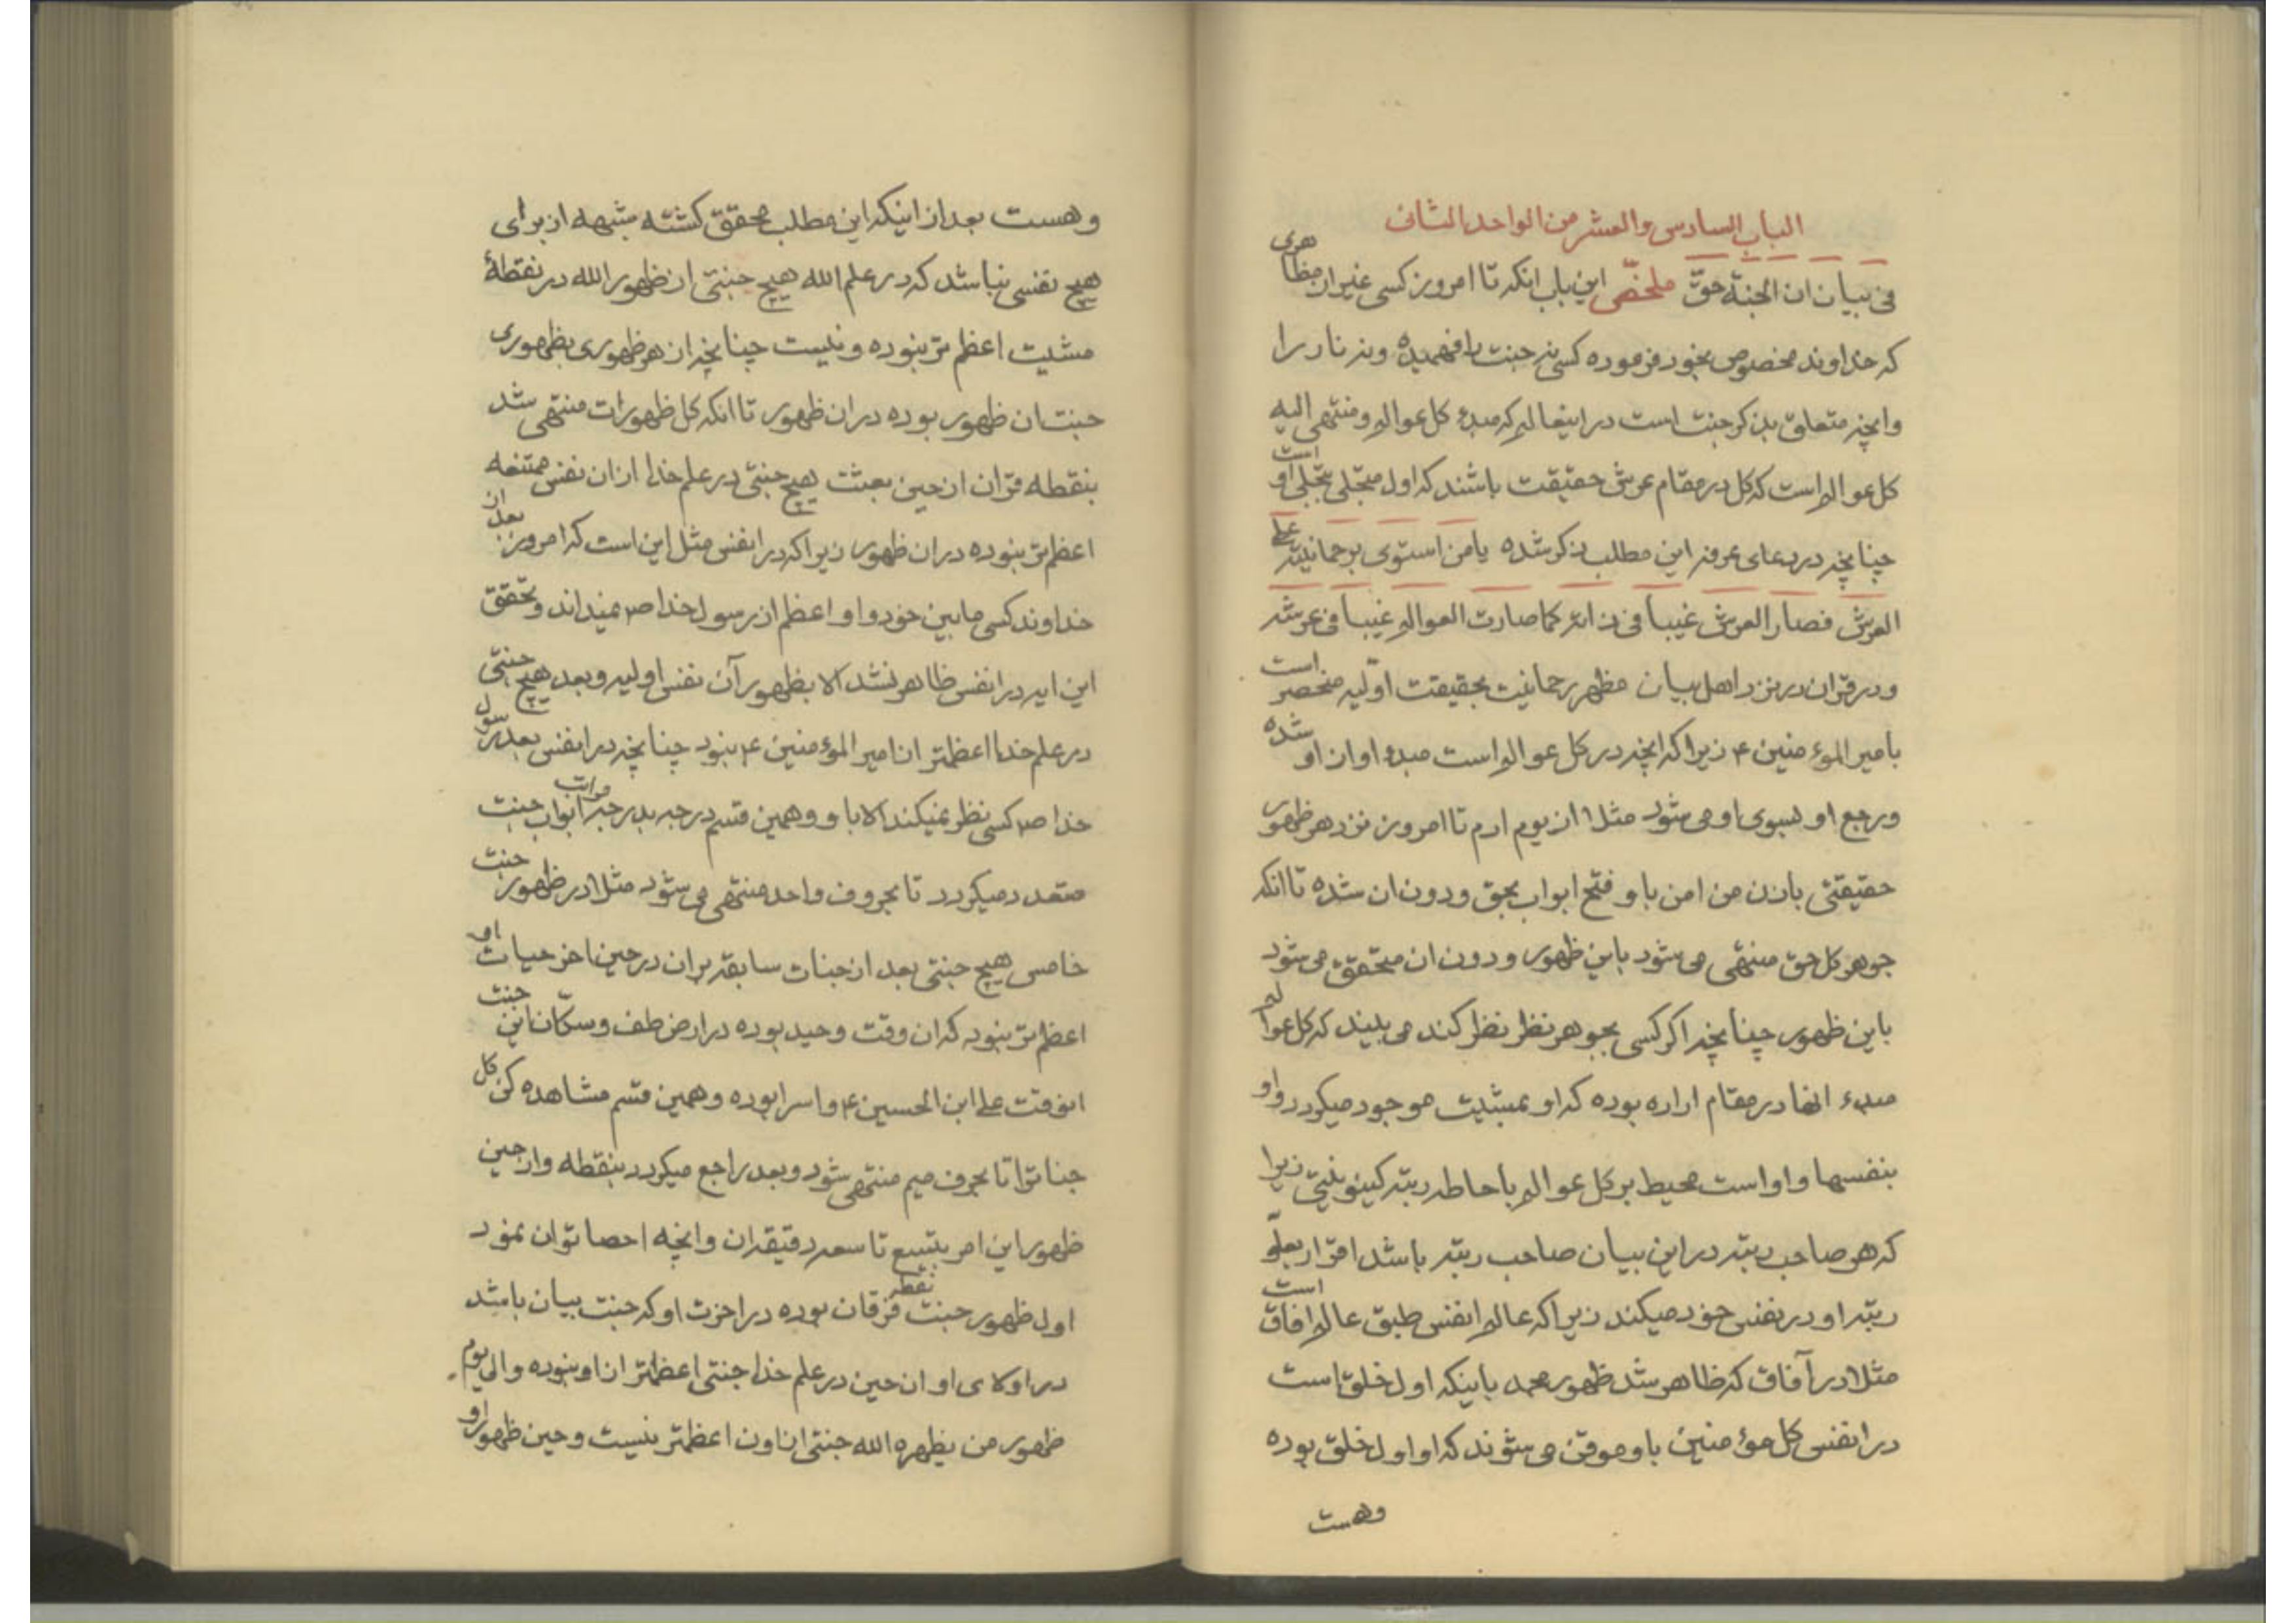 الباب السادس والعشر من الواحد الثانی
فی بیان ان الجنة حقّ ملخّص این باب انکه تا امروز کسی غیر از مظاهری
که خداوند مخصوص بخود فرموده کسی نه جنت را فهمیده ونه نار را
وانچه متعلق بذکر جنت است در اینعالم که مبدء کل عوالم ومنتهی الیه
کل عوالم است که کل در مقام عرش حقیقت باشند که اول متجلی بتجلی او است
چنانچه در دعای عرفه این مطلب ذکر شده یا من استوی برحمانیته علی
العرش فصار العرش غیباً فی ذاته کما صارت العوالم غیباً فی عرشه
ودر قران در نزد اهل بیان مظهر رحمانیت بحقیقت اوّلیه منحصر است
بامیر المؤمنین ۴ زیرا که انچه در کل عوالم است مبدء او از او شده
ورجع او بسوی او می شود مثلا از یوم ادم تا امروز نزد هر ظهور
حقیقتی باذن من امن با و فتح ابواب بحق ودون ان شده تا انکه
جوهر کل حق منتهی می شود باین ظهور ودون ان متحقق می شود
باین ظهور چنانچه اکر کسی بجوهر نظر نظر کند می بیند که کل عوالم
مبدء انها در مقام اراده بوده که او بمشیت موجود میکردد واو
بنفسها واو است محیط بر کل عوالم باحاطه رتبه کینونیتی زیرا
که هر صاحب رتبه در این بیان صاحب رتبه باشد اقرار بعلوّ
رتبه او در نفس خود میکند زیرا که عالم انفس طبق عالم افاق است
مثلا در آفاق که ظاهر شد ظهور محمد باینکه اول خلق است
در انفس کل مؤمنین با و موقن می شوند که او اول خلق بوده
وهست
وهست بعد از اینکه این مطلب محقق کشته شبهه از برای
هیچ نفسی نباشد که در علم الله هیچ جنتی از ظهور الله در نقطهٔ
مشیت اعظم تر نبوده ونیست چنانچه از هر ظهوری بظهوری
جنت ان ظهور بوده در ان ظهور تا انکه کل ظهورات منتهی شد
بنقطه قران از حین بعثت هیچ جنتی در علم خدا از ان نفس ممتنعه
اعظم تر نبوده در ان ظهور زیرا که در انفس مثل این است که امروز بعد از
خداوند کسی مابین خود و او اعظم از رسول خدا ص نمیداند وتحقق
این ایه در انفس ظاهر نشد الا بظهور آن نفس اولیه وبعد هیچ جنتی
در علم خدا اعظمتر از امیر المؤمنین ۴ نبود چنانچه در انفس بعد رسول
خدا ص کسی نظر نمیکند الا با و وهمین قسم درجه بدرجه مراتب ابواب جنت
متعدد میکردد تا بحروف واحد منتهی می شود مثلا در ظهور جنت
خامس هیچ جنتی بعد از جنات سابقه بران در حین اخر حیات او
اعظم تر نبود که ان وقت وحید بوده در ارض طف وسکّان این جنت
انوقت علی ابن الحسین ۴ واسرا بوده وهمین قسم مشاهده کن کل
جنات را تا بحرف میم منتهی شود وبعد راجع میکردد بنقطه واز حین
ظهور این امر بتسع تا سعه دقیقه ان وانچه احصا توان نمود
اول ظهور جنت نقطه فرقان بوده در اخرت او که جنت بیان باشد
در اولای او ان حین در علم خدا جنتی اعظمتر از او نبوده والی یوم
ظهور من یظهره الله جنتی از اون اعظمتر نیست وحین ظهور او